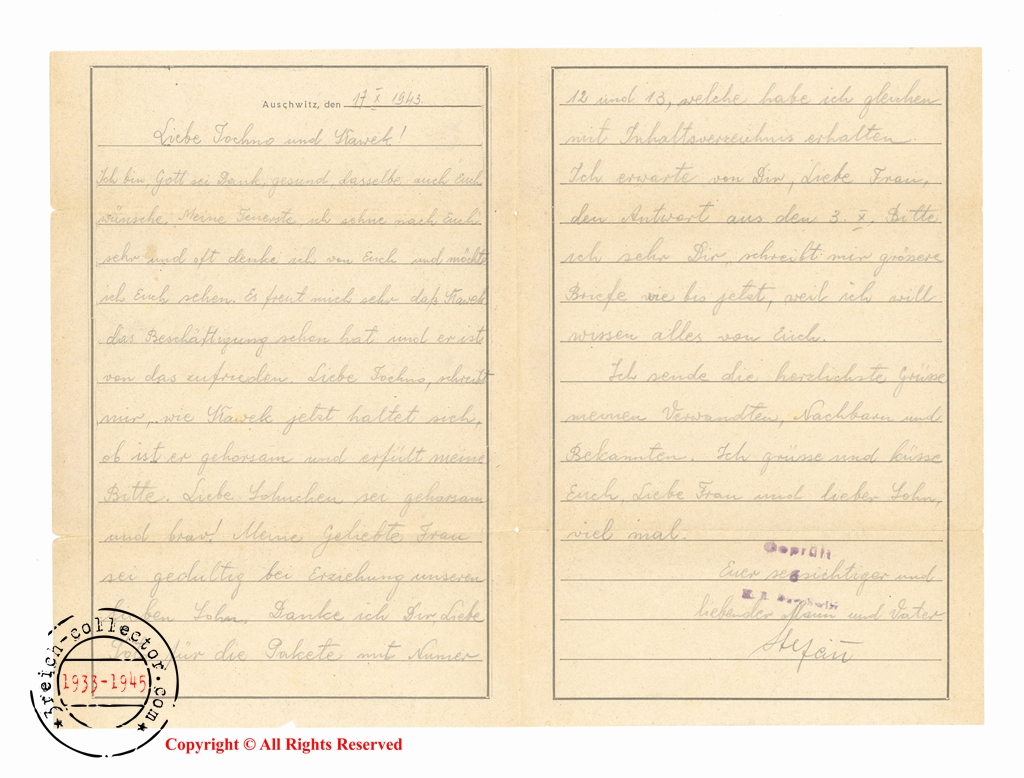 Auschwitz, den 17 X 1943.
Liebe Tochno und Sławek!
Ich bin Gott sei Dank, gesund, dasselbe auch Euch
wünsche. Meine Teuerste, ich sehne nach Euch
sehr und oft denke ich von Euch und möchte
ich Euch sehen. Es freut mich sehr daß Sławek
das Beschäftigung schon hat und er ist
von das zufrieden. Liebe Tochno, schreibt
mir, wie Sławek jetzt haltet sich,
ob ist er gehorsam und erfült meine
Bitte. Liebe Sohnchen sei gehorsam
und brav! Meine Geliebte Frau
sei gedultig bei Erziehung unseren
Sohn. Danke ich Dir Liebe
für die Pakete mit Numer
12 und 13, welche habe ich gleichen
mit Inhaltsverzeichnis erhalten.
Ich erwarte von Dir, Liebe Frau,
den Antwort aus den 3. X. Bitte
ich sehr Dir, schreibt mir grössere
Briefe wie bis jetzt, weil ich will
wissen alles von Euch.
Ich sende die herzlichste Grüsse
meinen Verwandten, Nachbarn und
Bekannten. Ich grüsse und küsse
Euch, Liebe Frau und lieber Sohn,
viel mal.
Geprüft
6
Euer sensichtiger und
liebender Mann und Vater
Stefan
3reich-collector.com
1933-1945
Copyright © All Rights Reserved